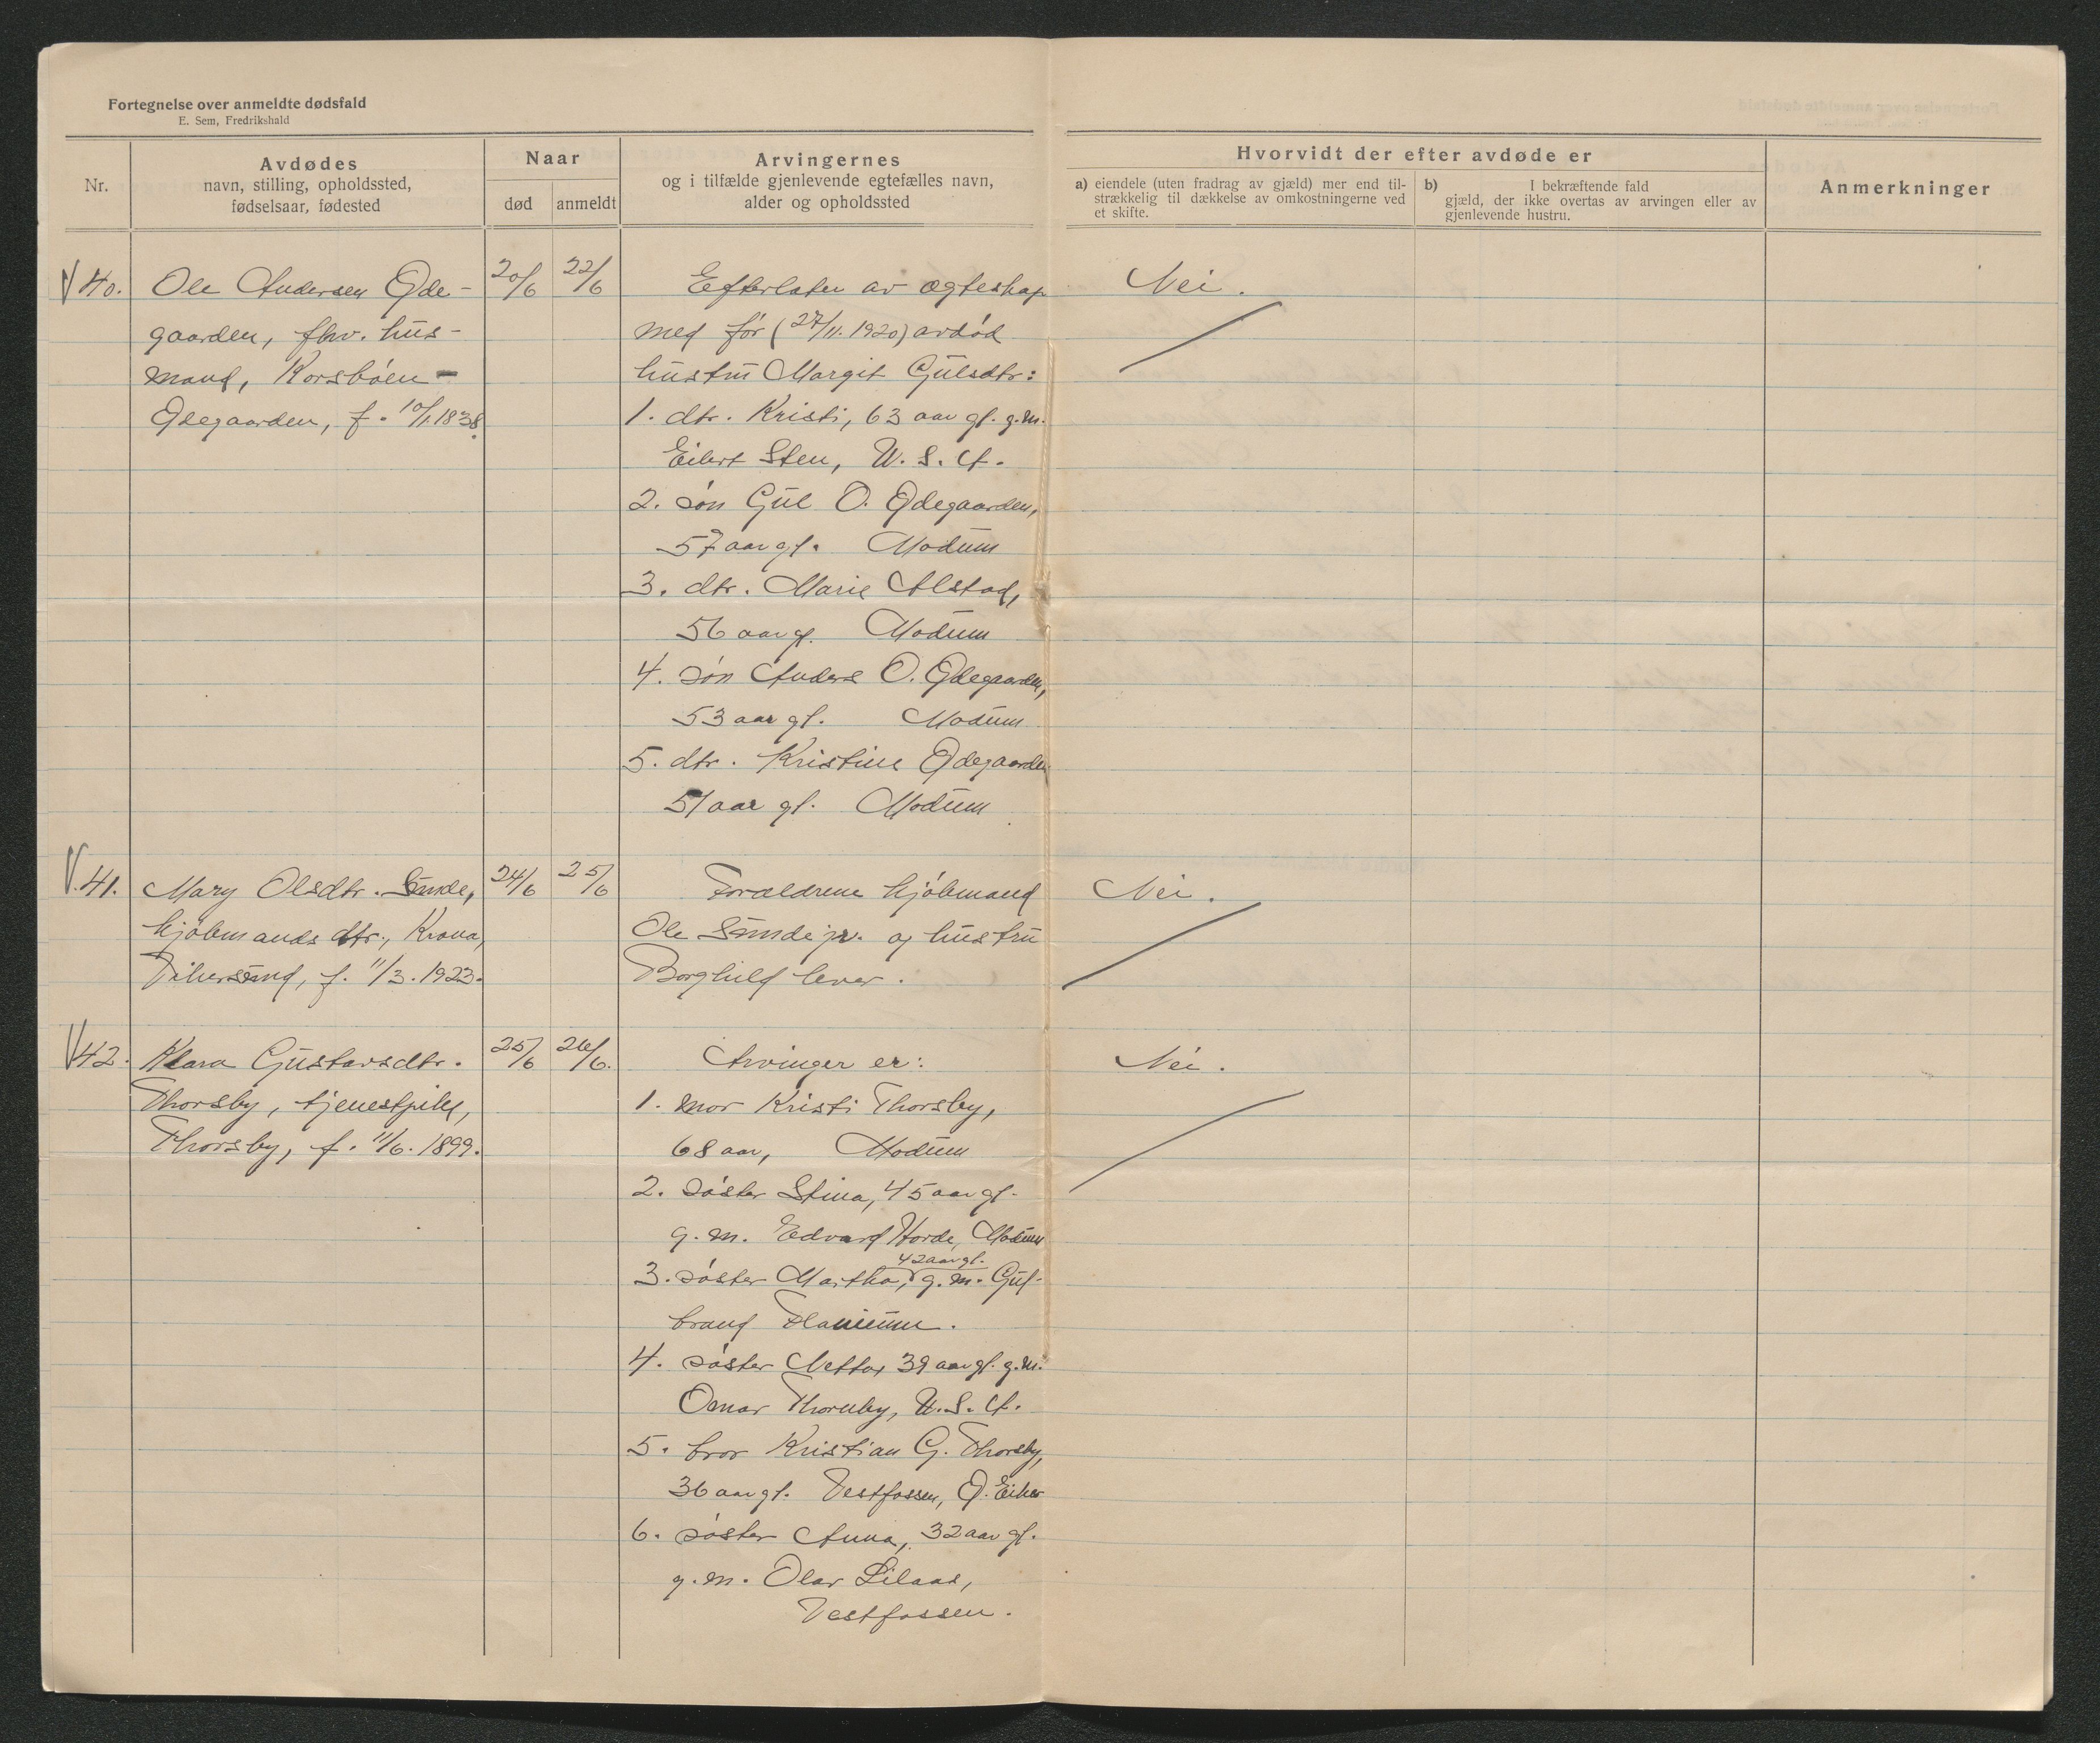 Fortegnelse over anmeldte dødsfald
E. Sem, Fredrikshald
Nr.
Avdødes
navn, stilling, opholdssted,
fødselsaar, fødested
Naar
død
anmeldt
Arvingernes
og i tilfælde gjenlevende egtefælles navn,
alder og opholdssted
Hvorvidt der efter avdøde er
a) eiendele (uten fradrag av gjæld) mer end til-
strækkelig til dækkelse av omkostningerne ved
et skifte.
b) I bekræftende fald
gjæld, der ikke overtas av arvingen eller av
gjenlevende hustru.
Anmerkninger
40.
Ole Andersen Øde-
gaarden, fhv. hus-
mand, Korsbøen-
Ødegaarden, f. 10/1.1838.
20/6
22/6
Efterlater av ægteskap
med før (27/11.1920) avdød
hustru Margit Gulsdtr:
1. dtr. Kristi, 63 aar gl. g.m.
Eilert Sten, U.S.A.
2. søn Gul O. Ødegaarden,
57 aar gl. Modum
3. dtr. Marie Alstad,
56 aar gl. Modum
4. søn Anders O. Ødegaarden,
53 aar gl. Modum
5. dtr. Kristine Ødegaarden
51 aar gl. Modum
Nei.
41.
Mary Olsdtr. Sunde,
kjøbmands dtr., Krona,
Vikersund, f. 11/3.1923.
24/6
25/6
Forældrene kjøbmand
Ole Sunde jr. og hustru
Borghild lever.
Nei.
42.
Klara Gustavsdtr.
Thorsby, tjenestpike,
Thorsby, f. 11/6.1899.
25/6
26/6.
Arvinger er:
1. mor Kristi Thorsby,
68 aar, Modum
2. søster Stina, 45 aar gl.
g.m. Edvard Horde, Modum
42 aar gl.
3. søster Martha, g.m. Gul-
brand
4. søster Netta, 39 aar gl. g.m.
Omar Thornby, U.S.A.
5. bror Kristian G. Thorsby,
36 aar gl. Vestfossen, Ø. Eiker
6. søster Anna, 32 aar gl.
g.m. Olav Lilaas,
Vestfossen.
Nei.